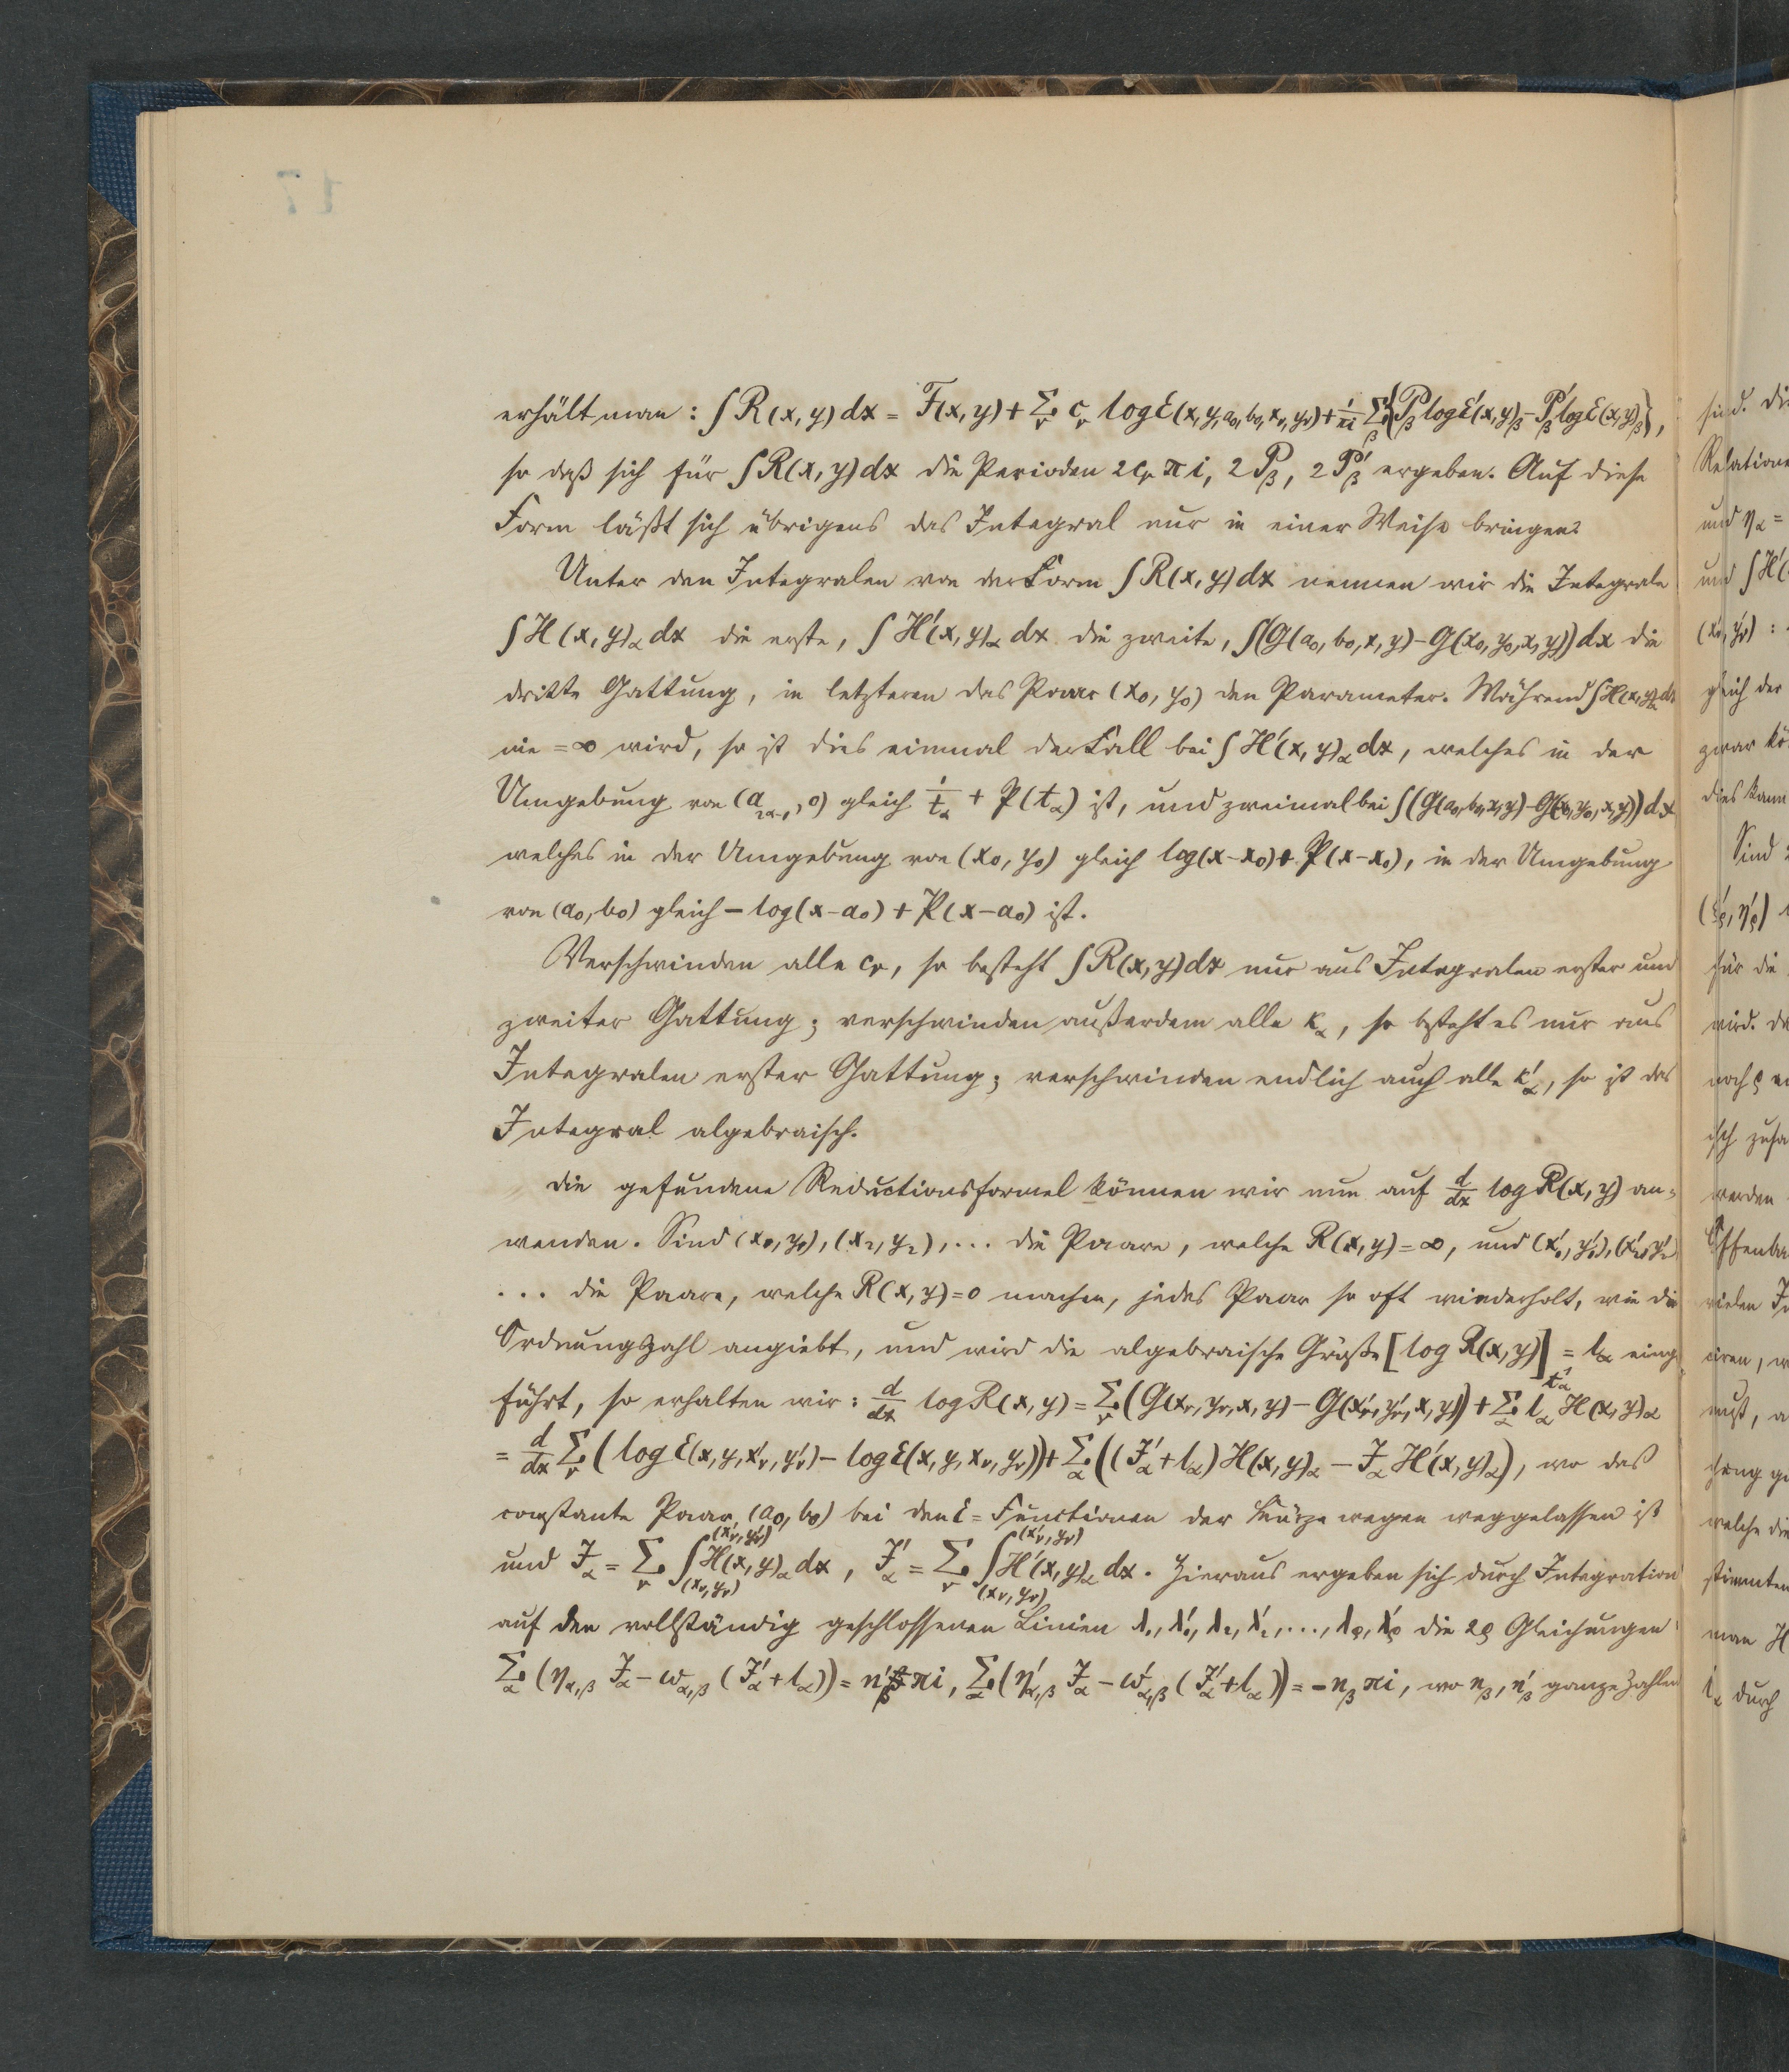 erhält man: ∫R(x, y)dx = F(x, y) + Σ_ν c_ν log E(x, y, a₀, b₀, x_ν, y_ν) + 1/πi Σ_β {P_β log E′(x, y)_β − P′_β log E(x, y)_β},
so daß sich für ∫R(x, y)dx die Perioden 2c_ν πi, 2P_β, 2P′_β ergeben. Auf diese
Form läßt sich übrigens das Integral nur in einer Weise bringen.
Unter den Integralen von der Form ∫R(x, y)dx nennen wir die Integrale
∫H(x, y)_α dx die erste, ∫H′(x, y)_α dx die zweite, ∫(G(a₀, b₀, x, y) − G(x₀, y₀, x, y))dx die
dritte Gattung, in letzteren das Paar (x₀, y₀) den Parameter. Während ∫H(x, y)_α dx
nie = ∞ wird, so ist dies einmal der Fall bei ∫H′(x, y)_α dx, welches in der
Umgebung von (a_{2α−1}, 0) gleich 1/t_α + P(t_α) ist, und zweimal bei ∫(G(a₀, b₀, x, y) − G(x₀, y₀, x, y))dx
welches in der Umgebung von (x₀, y₀) gleich log(x − x₀) + P(x − x₀), in der Umgebung
von (a₀, b₀) gleich − log(x − a₀) + P(x − a₀) ist.
Verschwinden alle c_ν, so besteht ∫R(x, y)dx nur aus Integralen erster und
zweiter Gattung; verschwinden außerdem alle κ_α, so besteht es nur aus
Integralen erster Gattung; verschwinden endlich auch alle κ′_α, so ist das
Integral algebraisch.
Die gefundene Reductionsformel können wir nun auf d/dx log R(x, y) an=
wenden. Sind (x₁, y₁), (x₂, y₂), ... die Paare, welche R(x, y) = ∞, und (x′₁, y′₁), (x′₂, y′₂)
... die Paare, welche R(x, y) = 0 machen, jedes Paar so oft wiederholt, wie die
Ordnungszahl angiebt, und wird die algebraische Größe [log R(x, y)]_{t′_α} = l_α einge
führt, so erhalten wir: d/dx log R(x, y) = Σ_ν (G(x_ν, y_ν, x, y) − G(x′_ν, y′_ν, x, y)) + Σ_α l_α H(x, y)_α
= d/dx Σ_ν (log E(x, y, x′_ν, y′_ν) − log E(x, y, x_ν, y_ν)) + Σ_α ((J′_α + l_α) H(x, y)_α − J_α H′(x, y)_α), wo das
constante Paar (a₀, b₀) bei den E = Functionen der Kürze wegen weggelassen ist
und J_α = Σ_ν ∫_{(x_ν, y_ν)}^{(x′_ν, y′_ν)} H(x, y)_α dx, J′_α = Σ_ν ∫_{(x_ν, y_ν)}^{(x′_ν, y′_ν)} H′(x, y)_α dx. Hieraus ergeben sich durch Integration
auf den vollständig geschlossenen Linien λ₁, λ′₁, λ₂, λ′₂, ..., λ_ρ, λ′_ρ die 2ρ Gleichungen
Σ_α (η_{α,β} J_α − ω_{α,β} (J′_α + l_α)) = n′_β πi, Σ_α (η′_{α,β} J_α − ω′_{α,β} (J′_α + l_α)) = −n_β πi, wo n_β, n′_β ganze Zahlen